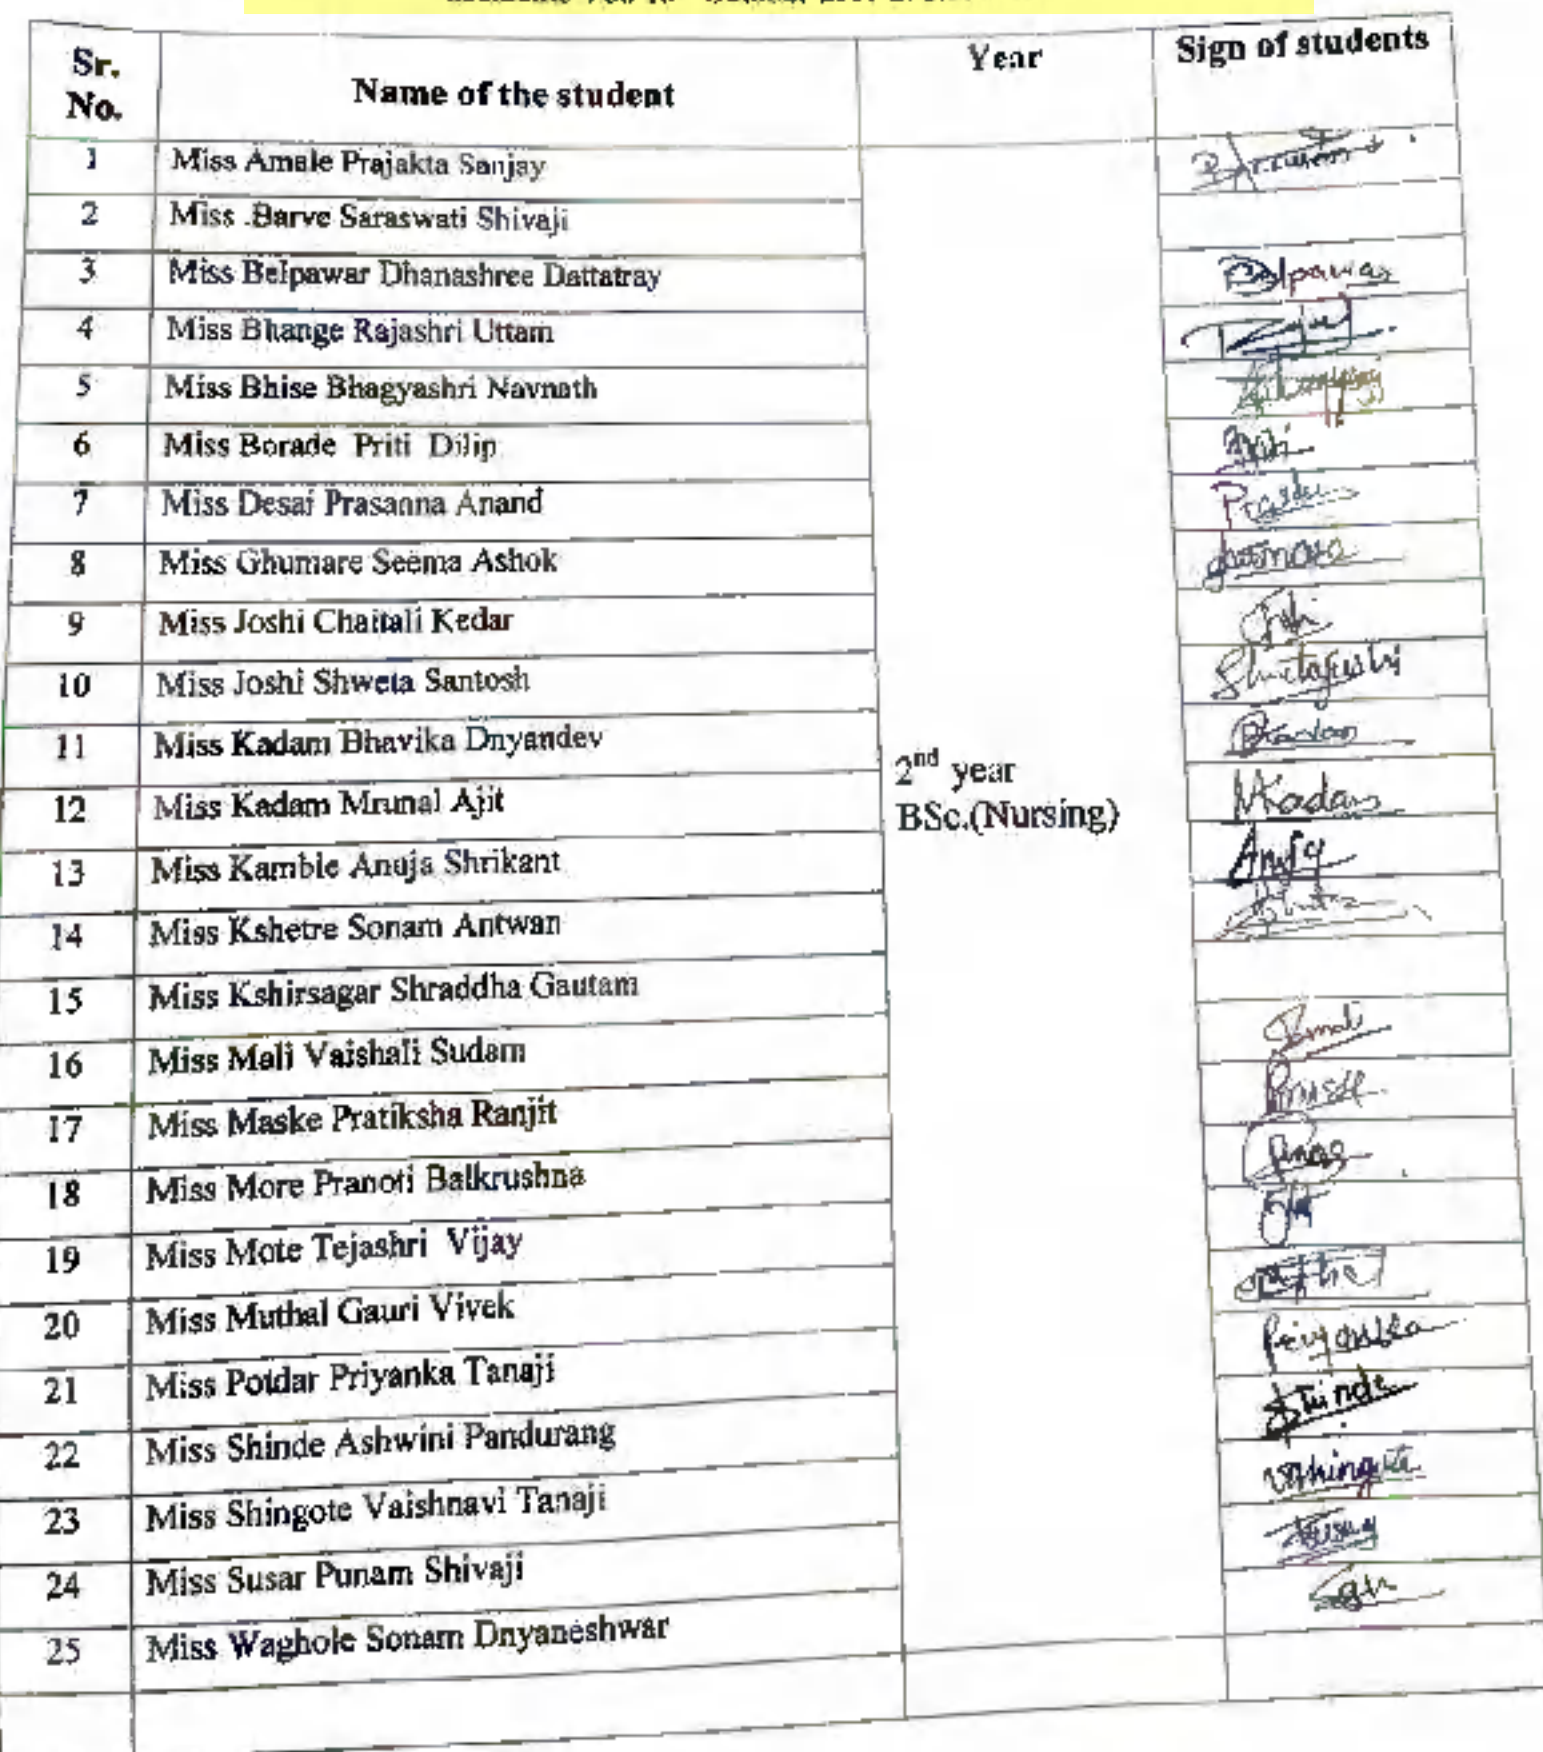 Sr. No. Name of the student Year Sign of students
1 Miss Amale Prajakta Sanjay
2 Miss .Barve Saraswati Shivaji
3 Miss Belpawar Dhanashree Dattatray Belpawar
4 Miss Bhange Rajashri Uttam
5 Miss Bhise Bhagyashri Navnath
6 Miss Borade Priti Dilip
7 Miss Desai Prasanna Anand
8 Miss Ghumare Seema Ashok
9 Miss Joshi Chaitali Kedar
10 Miss Joshi Shweta Santosh
11 Miss Kadam Bhavika Dnyandev
2nd year
BSc.(Nursing)
12 Miss Kadam Mrunal Ajit MKadam
13 Miss Kamble Anuja Shrikant Anuja
14 Miss Kshetre Sonam Antwan
15 Miss Kshirsagar Shraddha Gautam
16 Miss Mali Vaishali Sudam
17 Miss Maske Pratiksha Ranjit
18 Miss More Pranoti Balkrushna
19 Miss Mote Tejashri Vijay
20 Miss Muthal Gauri Vivek
21 Miss Potdar Priyanka Tanaji Priyanka
22 Miss Shinde Ashwini Pandurang Shinde
23 Miss Shingote Vaishnavi Tanaji
24 Miss Susar Punam Shivaji
25 Miss Waghole Sonam Dnyaneshwar